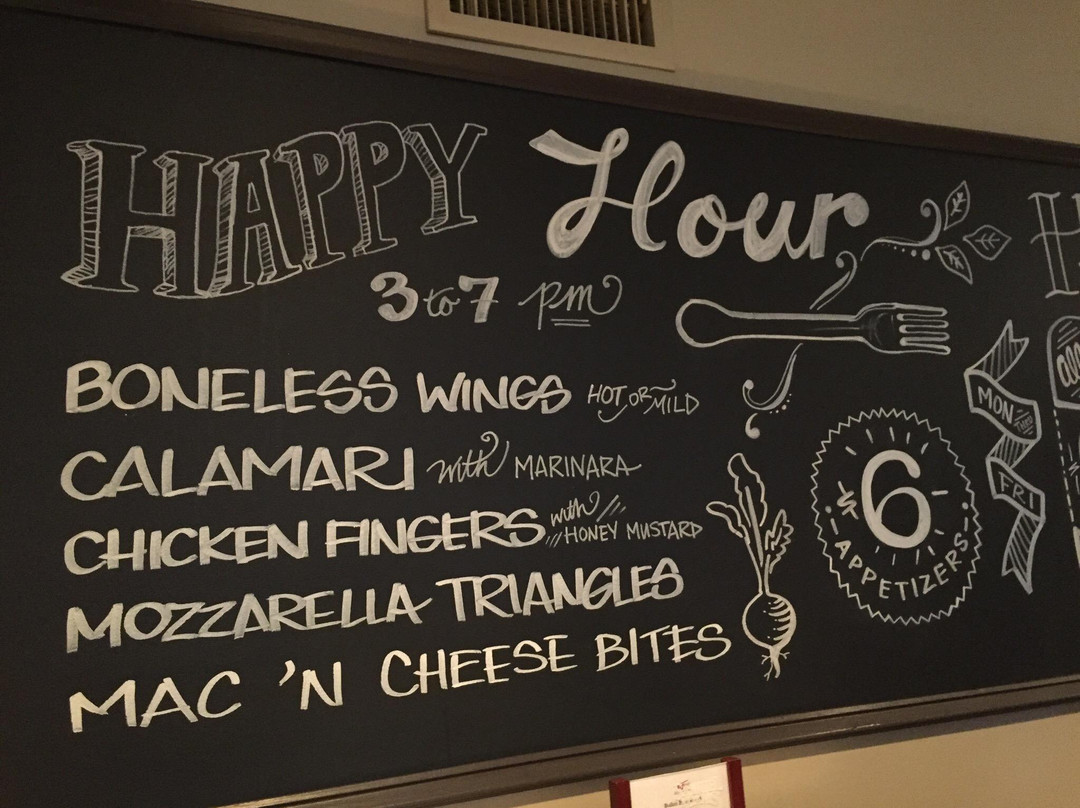 HAPPY Hour
3 to 7 pm
BONELESS WINGS HOT OR MILD
CALAMARI with MARINARA
CHICKEN FINGERS with HONEY MUSTARD
MOZZARELLA TRIANGLES
MAC 'N CHEESE BITES
$6
APPETIZERS
MON THRU
FRI